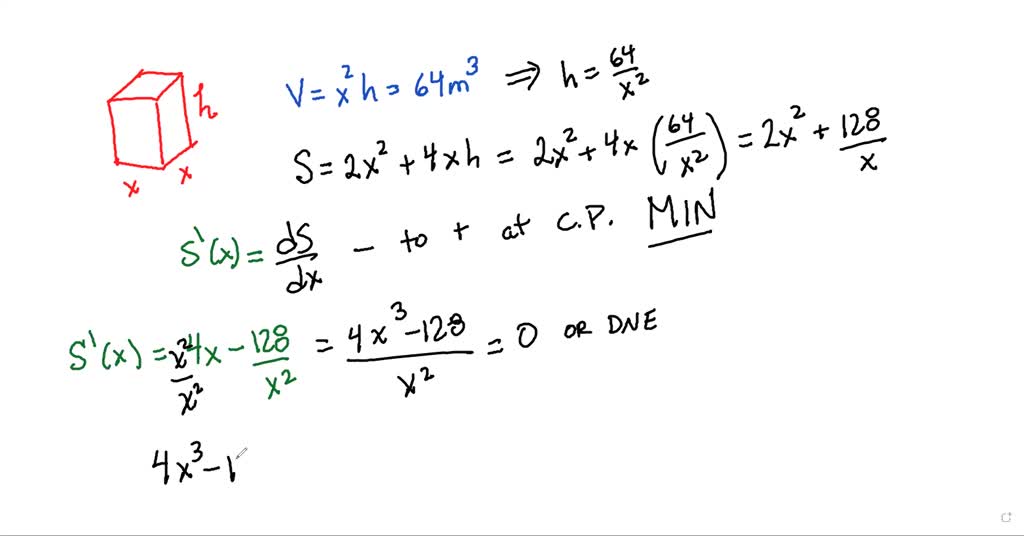 h
x x
V = x²h = 64m³ ⇒ h = 64/x²
S = 2x² + 4xh = 2x² + 4x (64/x²) = 2x² + 128/x
S'(x) = dS/dx - to + at C.P. MIN
S'(x) = x²/x² 4x - 128/x² = (4x³ - 128)/x² = 0 OR DNE
4x³ - 1